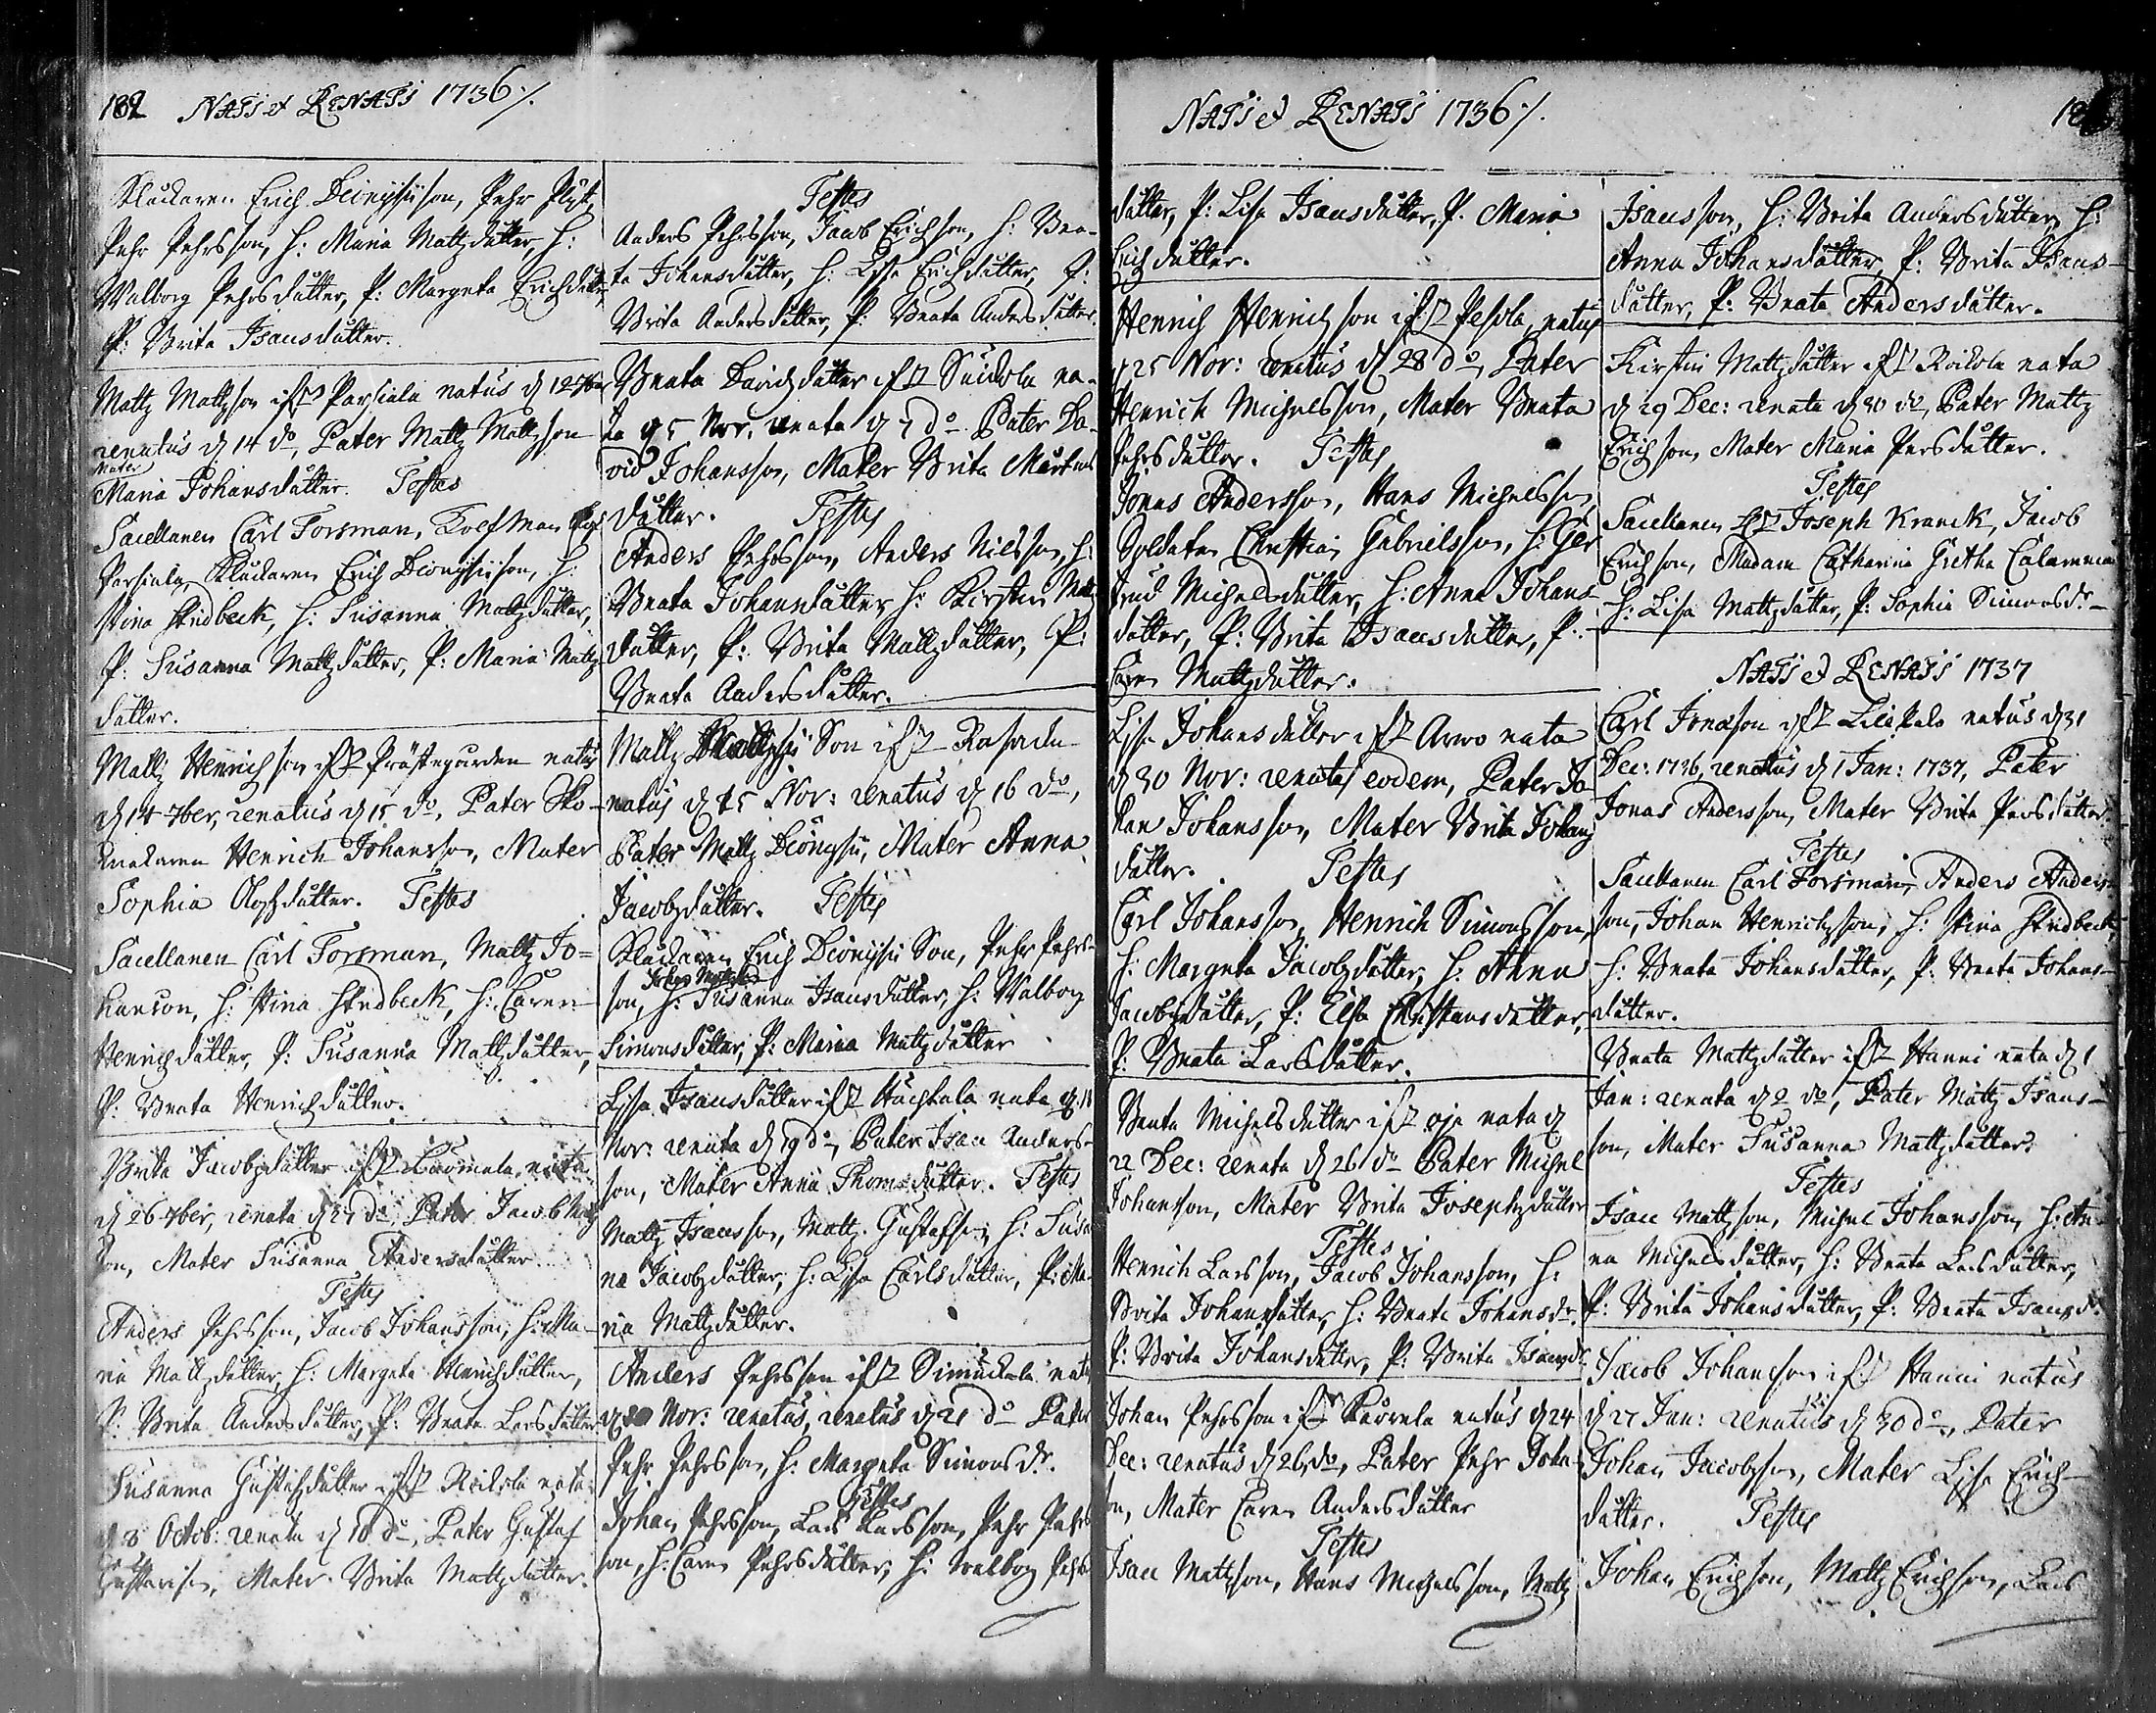 182 NATI et RENATI 1736 ⁒.
Kluckaren Erich Dionysiison, Pehr
Pehr Pehrsson, H: Maria Mattzdåtter, H:
Walborg Pehrsdåtter, P: Margeta Erichdåtter
P: Brita Isaacsdåtter.
Mattz Mattzson if: natus d 12 7ber
renatus d 14 do, Pater Mattz Mattzson
Mater
Maria Johansdåtter. Testes
Sacellanen Carl Forsman,
Kluckaren Erich Dionysiison, H:
Stina Stridbeck, H: Susanna Mattzdåtter,
P: Susanna Mattzdåtter, P: Maria Mattz
dåtter.
Mattz Henrichson if: Prästegården natus
d 14 7ber, renatus d 15 do, Pater Sko-
makaren Henrich Johansson, Mater
Sophia Olofzdåtter. Testes
Sacellanen Carl Forsman, Mattz Jo=
hanson, H: Stina Stridbeck, H: Caren
Henrichdåtter, P: Susanna Mattzdåtter,
P: Beata Henrichdåtter.
Brita Jacobzdåtter if: nata
d 26 7ber, renata d 27 do, Pater Jacob
son, Mater Susanna Andersdåtter
Testes
Anders Pehrsson, Jacob Johansson, H: Ma-
ria Mattzdåtter, H: Margeta Henrichdåtter,
P: Brita Andersdåtter, P: Beata Larsdåtter
Susanna Gustafzdåtter if: nata
d 8 Octob: renata d 10 do, Pater Gustaf
Mater Brita Mattzdåtter.
Testes
Anders Pehrsson, Jacob Erichson, H: Bea-
ta Johansdåtter, H: Lisa Erichdåtter, P:
Brita Andersdåtter, P: Beata Andersdåtter.
Beata Davidzdåtter if: na-
ta d 5 Nov: renata d 7 do Pater Da-
vid Johansson, Mater Brita Mårtens
dåtter. Testes
Anders Pehrsson, Anders Nilsson, H:
Beata Johansdåtter, H: Kirstin Mattz
dåtter, P: Brita Mattzdåtter, P:
Beata Andersdåtter.
Mattz Son if:
natus d 15 Nov: renatus d 16 do,
Pater Mattz Dionysii, Mater Anna
Jacobzdåtter. Testes
Kluckaren Erich Dionysii Son, Pehr Pehrs-
son, H: Susanna Isaacsdåtter, H: Walborg
Simonsdåtter, P: Maria Mattzdåtter
Lisa Isaacsdåtter if: nata d 18
Nov: renata d 19 do, Pater Isaac Anders-
son, Mater Anna Thomsdåtter. Testes
Mattz Isaacsson, Mattz Gustafson, H: Susan
na Jacobzdåtter, H: Lisa Carlsdåtter, P: Ma-
ria Mattzdåtter.
Anders Pehrsson if: natus
d 20 Nov: renatus, renatus d 21 do Pater
Pehr Pehrsson, H: Margeta Simonsdr.
Testes
Johan Pehrsson, Lars Larsson, Pehr Pehrs
son, H: Caren Pehrsdåtter, H: Walborg Pehrs
NATI et RENATI 1736 ⁒.
dåtter, P: Lisa Isaacsdåtter, P: Maria
Erichdåtter.
Henrich Henrichson if: Pesola natus
d 25 Nov: renatus d 28 do, Pater
Henrich Michelsson, Mater Beata
Pehrsdåtter. Testes
Jonas Andersson, Hans Michelsson,
Soldaten Christian Gabrielsson, H: Ger
trud Michelsdåtter, H: Anna Johans
dåtter, P: Brita Isaacsdåtter, P:
Caren Mattzdåtter.
Lisa Johansdåtter if: Arvo nata
d 30 Nov: renata eodem, Pater Jo
han Johansson, Mater Brita Johans
dåtter. Testes
Carl Johansson, Henrich Simonsson,
H: Margeta Jacobzdåtter, H: Anna
Jacobzdåtter, P: Elsa Christiansdåtter,
P: Beata Larsdåtter.
Beata Michelsdåtter if: nata d
22 Dec: renata d 26 do Pater Michel
Johansson, Mater Brita Josephzdåtter
Testes
Henrich Larsson, Jacob Johansson, H:
Brita Johansdåtter, H: Beata Johansdr.
P: Brita Johansdåtter, P: Brita Isaacsdr
Johan Pehrsson if: natus d 24
Dec: renatus d 26 do, Pater Pehr Johan
son, Mater Caren Andersdåtter
Testes
Isaac Mattzson, Hans Michelsson, Mattz
Isaacsson, H: Brita Andersdåtter, H:
Anna Johansdåtter, P: Brita Isaacs-
dåtter, P: Beata Andersdåtter.
Kirstin Mattzdåtter if: nata
d 29 Dec: renata d 30 do, Pater Mattz
Erichson, Mater Maria Persdåtter.
Testes
Sacellanen Joseph Kranck, Jacob
Erichson, Madam Catharina Gretha
H: Lisa Mattzdåtter, P: Sophia Simonsdr-
NATI et RENATI 1737
Carl Jonasson if: natus d 31
Dec: 1736, renatus d 1 Jan: 1737, Pater
Jonas Andersson, Mater Brita Persdåtter
Testes
Sacellanen Carl Forsman, Anders Anders-
son, Johan Henrichson, H: Stina Stridbeck,
H: Beata Johansdåtter, P: Beata Johans-
dåtter.
Beata Mattzdåtter if: Hanni nata d 1
Jan: renata d 2 do, Pater Mattz Isaacs-
son, Mater Susanna Mattzdåtter.
Testes
Isaac Mattzson, Michel Johansson, H: An-
na Michelsdåtter, H: Beata Larsdåtter,
P: Brita Johansdåtter, P: Beata Isaacsd.
Jacob Johansson if: Hanni natus
d 27 Jan: renatus d 30 do, Pater
Johan Jacobzson, Mater Lisa Erich-
dåtter. Testes
Johan Erichson, Mattz Erichson, Lars